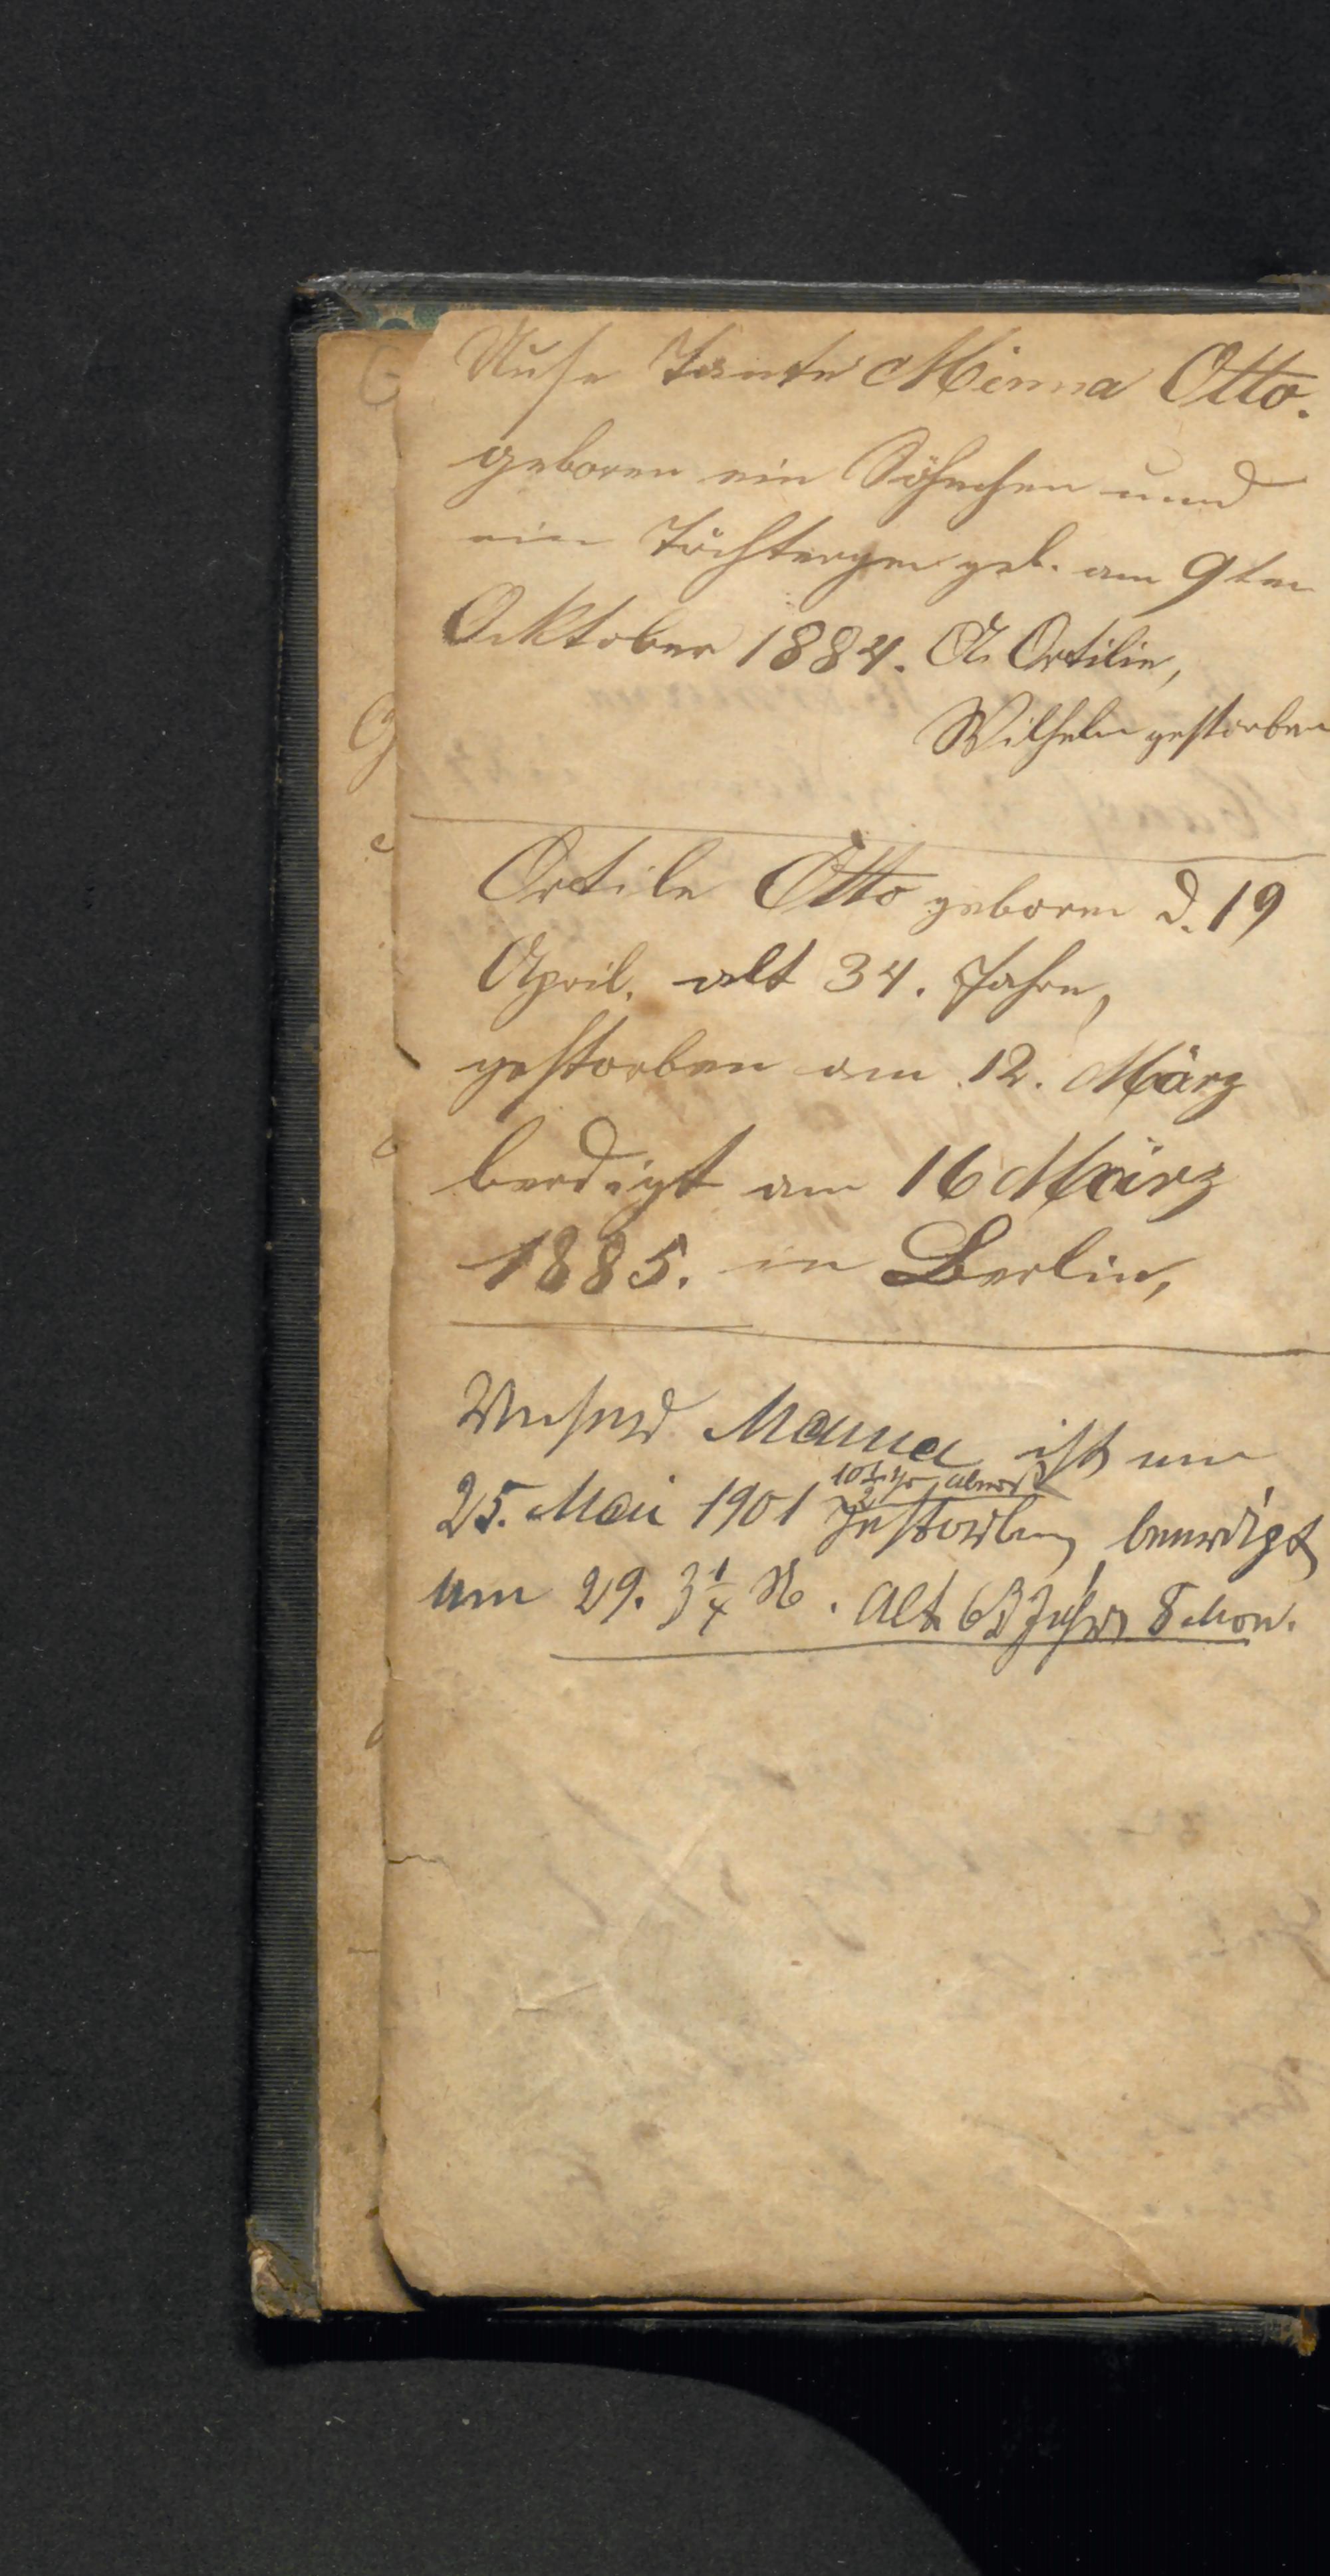 Unse Tante Minna Otto.
geboren ein Söhnchen und
ein Töchtergen geb. am 9ten
Ocktober 1884. A. Ortilie,
Wilhelm gestorben
Ortile Otto geboren d. 19
April. alt 34. Jahre,
gestorben am 12. März
berdigt am 16 März
1885. in Berlin,
Unsere Mama ist am
10½ Abend
25. Mai 1901 gestorben beerdigt
am 29. 3¼ N. Alt Jahre 8 Mon.